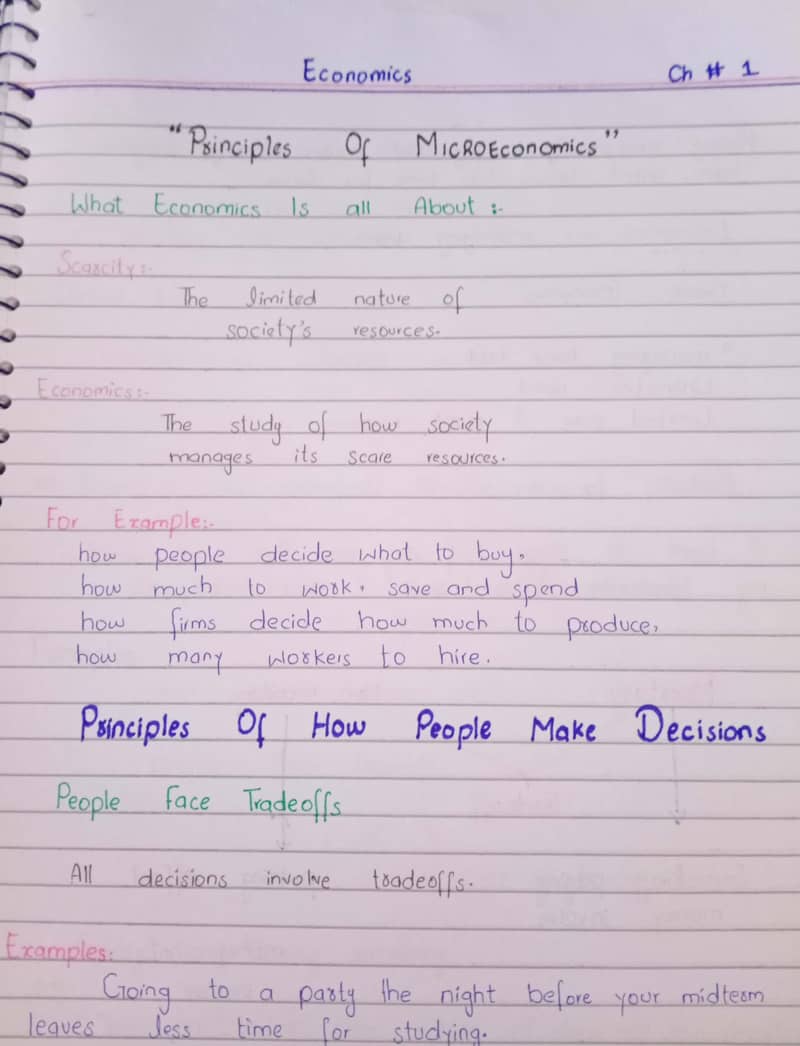 Economics Ch # 1
"Principles Of MICROEconomics"
What Economics Is all About :-
Scarcity:-
The limited nature of
society's resources.
Economics:-
The study of how society
manages its scare resources.
For Example:-
how people decide what to buy,
how much to work, save and spend
how firms decide how much to produce,
how many workers to hire.
Principles Of How People Make Decisions
People Face Tradeoffs
All decisions involve tradeoffs.
Examples:
Going to a party the night before your midterm
leaves less time for studying.